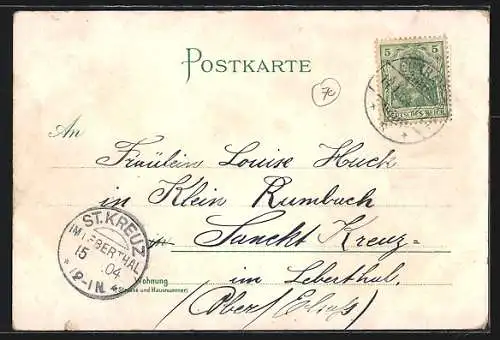 POSTKARTE
5 5
DEUTSCHES REICH
7c
An
Fräulein Louise Huck
in Klein Rumbach
Sanckt Kreuz-
im Leberthal.
(Ober/Elsass)
ST. KREUZ
IM LEBERTHAL
15 04
* 12-1N. *
Wohnung
(Strasse und Hausnummer)